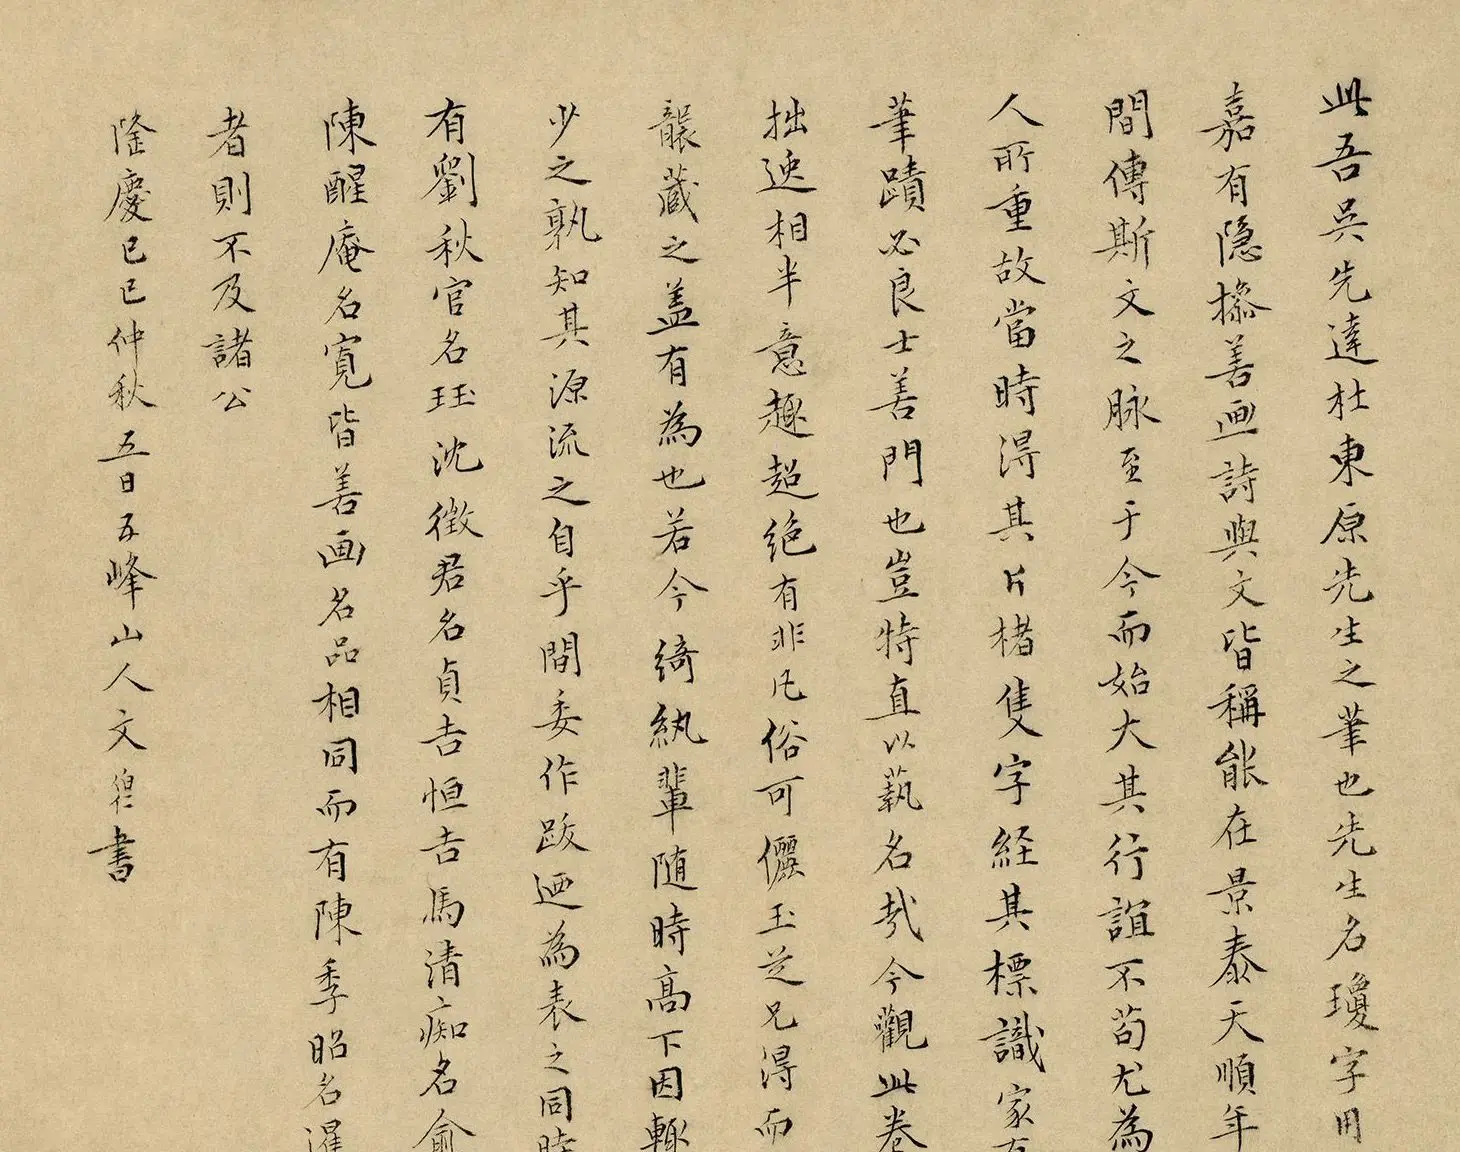 此吾吳先達杜東原先生之筆也先生名瓊字用
嘉有隐操善画詩與文皆稱能在景泰天順年
間傳斯文之脉至于今而始大其行誼不苟尤為
人所重故當時得其片楮隻字経其標識家有
筆蹟必良士善門也豈特直以藝名哉今觀此卷
拙逸相半意趣超绝有非凡俗可儷玉芝兄得而
襲藏之盖有為也若今綺紈輩随時高下因輙
少之孰知其源流之自乎間委作跋迺為表之同時
有劉秋官名珏沈徵君名貞吉恒吉馬清痴名俞
陳醒庵名寛皆善画名品相同而有陳季昭名暹
者則不及諸公
隆慶己巳仲秋五日五峰山人文伯仁書